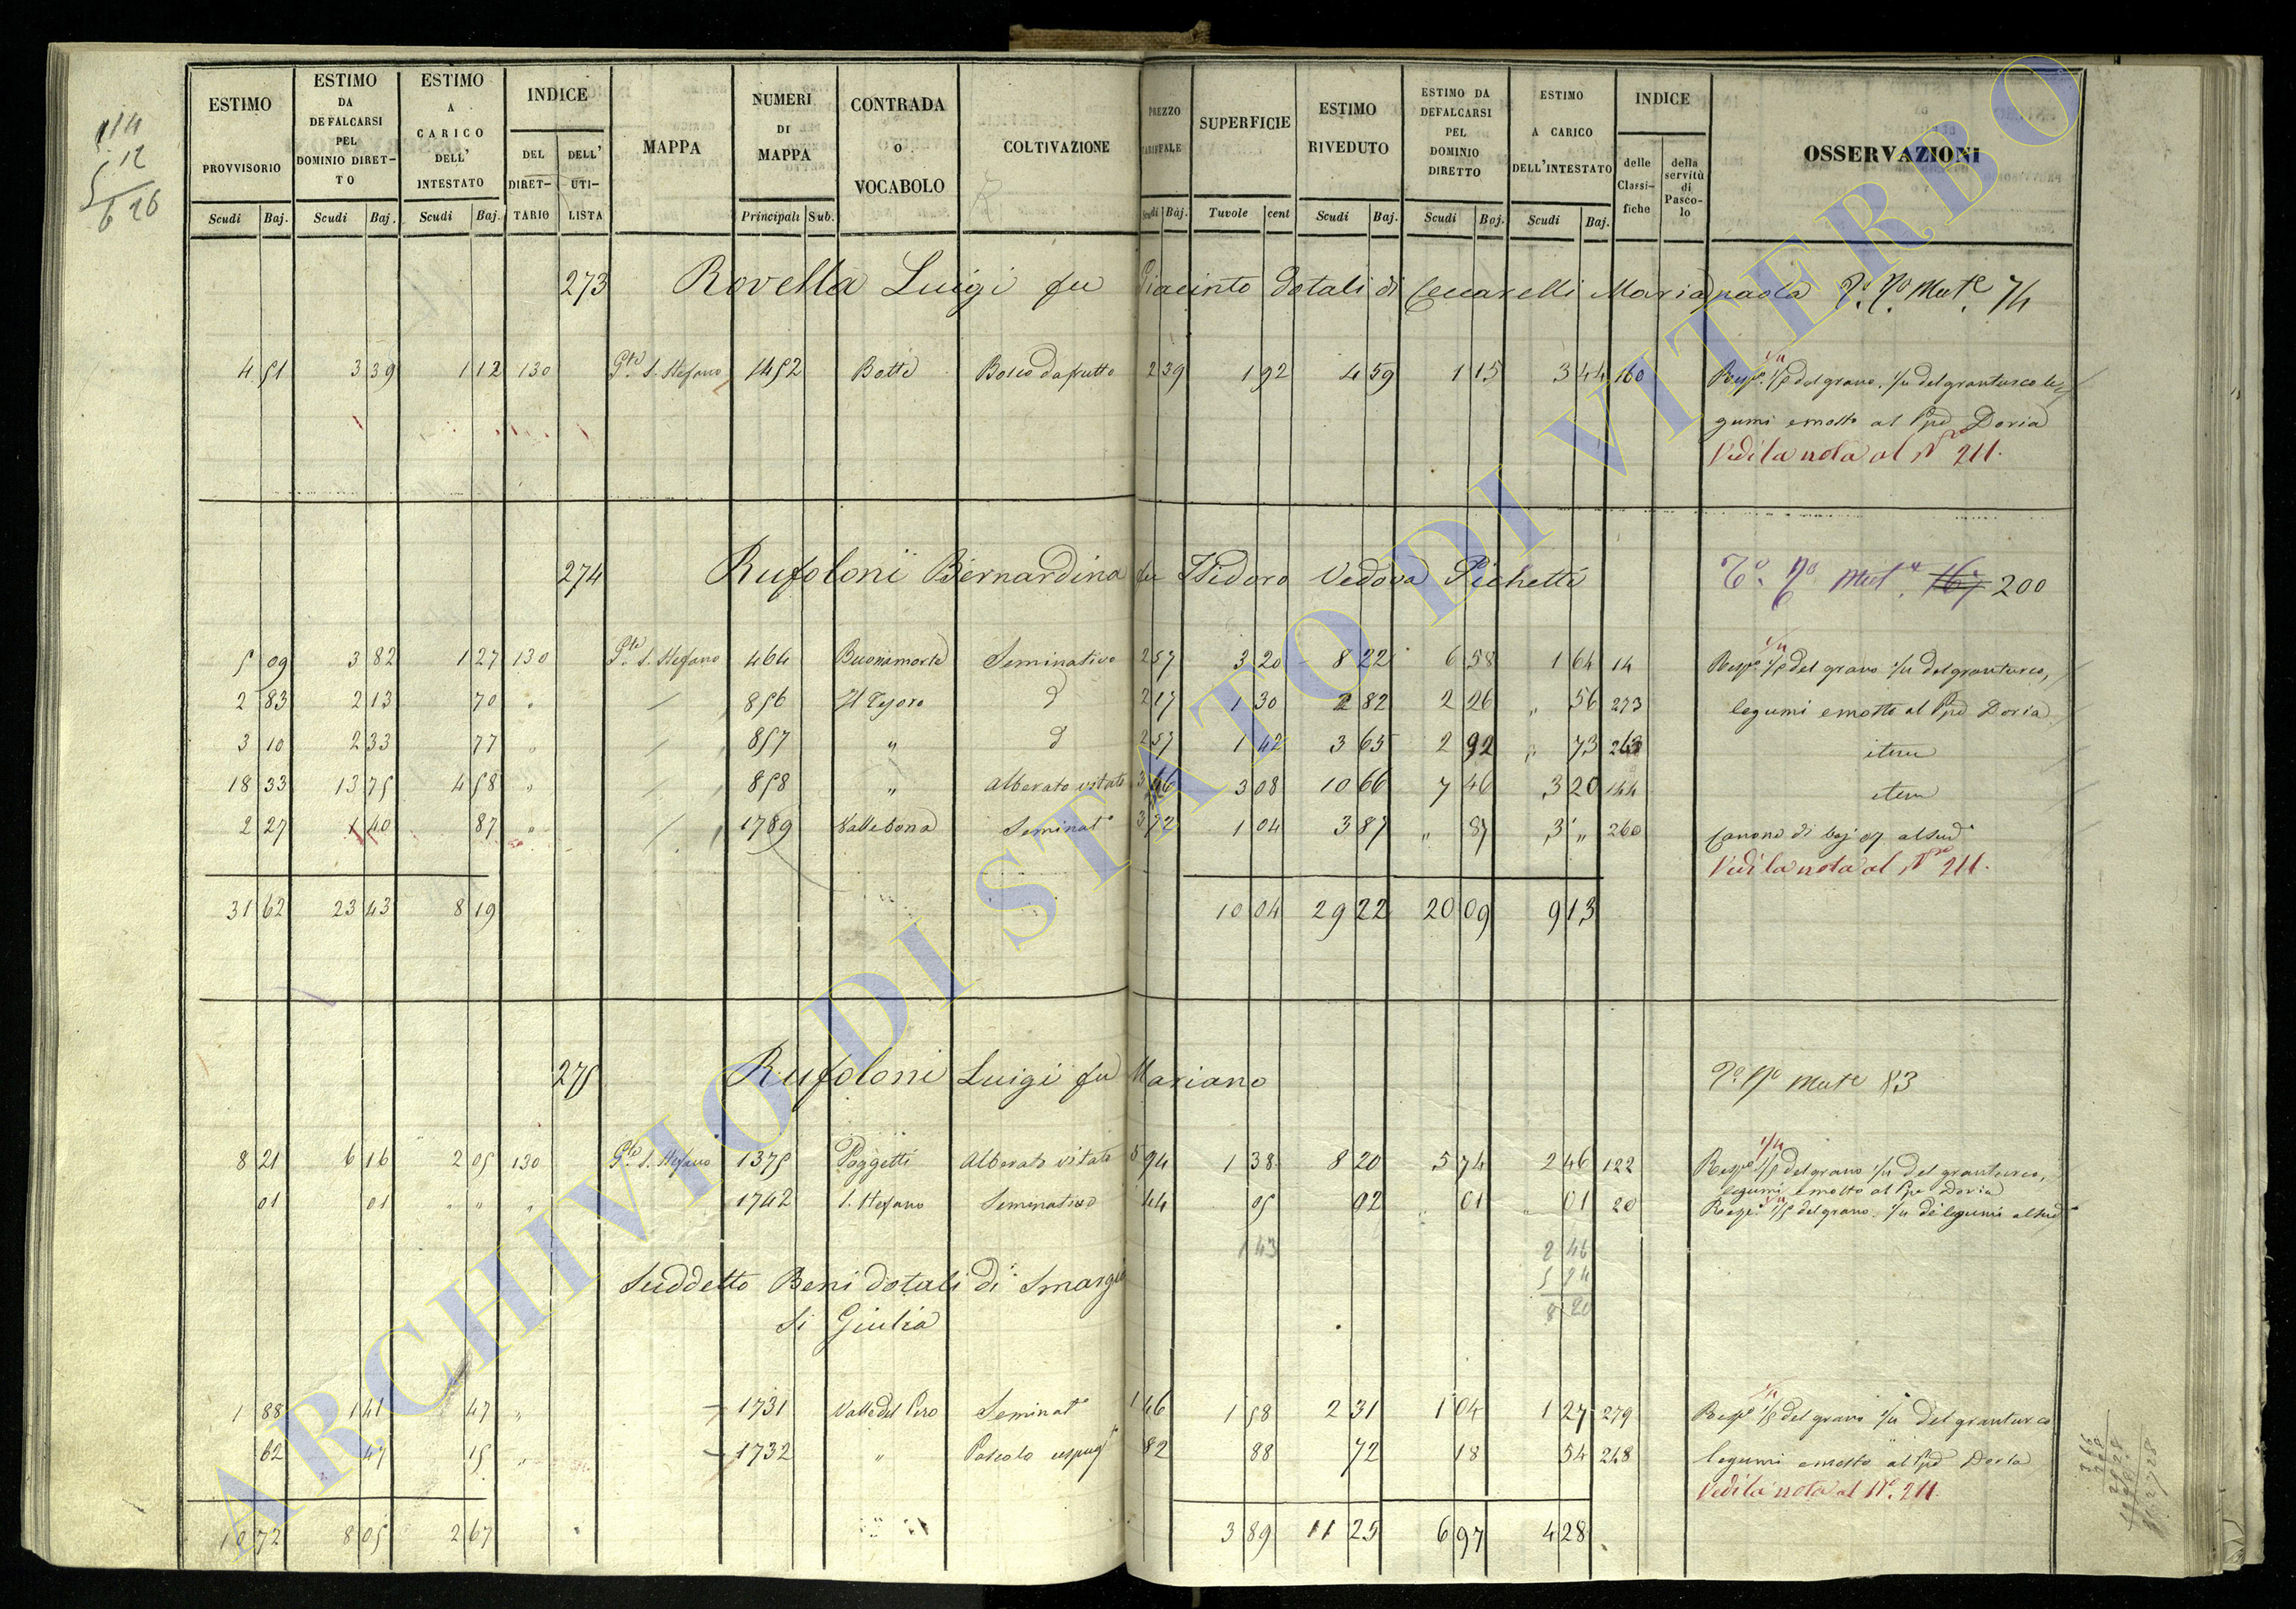 114
12
5
6 26
ESTIMO PROVVISORIO | ESTIMO DA DEFALCARSI PEL DOMINIO DIRET-TO | ESTIMO A CARICO DELL' INTESTATO | INDICE DEL DIRET-TARIO | DELL' UTI-LISTA | MAPPA | NUMERI DI MAPPA | CONTRADA O VOCABOLO | COLTIVAZIONE | PREZZO TARIFFALE | SUPERFICIE | ESTIMO RIVEDUTO | ESTIMO DA DEFALCARSI PEL DOMINIO DIRETTO | ESTIMO A CARICO DELL'INTESTATO | INDICE delle Classi-fiche | della servitù di Pasco-lo | OSSERVAZIONI
Scudi Baj. | Scudi Baj. | Scudi Baj. | Principali Sub. | Scudi Baj. | Tavole cent | Scudi Baj. | Scudi Baj. | Scudi Baj.
273 Rovella Luigi fu Giacinto dotali di Ceccarelli Mariapaola 74
4 51 | 3 39 | 1 12 | 130 | Gte S. Stefano | 1452 | Botte | Bosco da frutto | 2 39 | 1 92 | 4 59 | 1 15 | 3 44 | 160 | Respe 1/5 del grano, 1/4 del granturco le-
gumi e mosto al Ppe Doria
Vedi la nota al No 211.
274 Rufoloni Bernardina fu Isidoro Vedova Pichetti 167 200
5 09 | 3 82 | 1 27 | 130 | Gte S. Stefano | 464 | Buonamorte | Seminativo | 2 57 | 3 20 | 8 22 | 6 58 | 1 64 | 14 | Respe 1/5 del grano 1/4 del granturco,
2 83 | 2 13 | 70 | " | 856 | Il Tesoro | d | 2 17 | 1 30 | 2 82 | 2 26 | " 56 | 273 | legumi e mosto al Ppe Doria
3 10 | 2 33 | 77 | " | 857 | " | d | 2 57 | 1 42 | 3 65 | 2 92 | " 73 | 263 | item
18 33 | 13 75 | 4 58 | " | 858 | " | Alberato vitato | 3 46 | 3 08 | 10 66 | 7 46 | 3 20 | 144 | item
2 27 | 1 40 | 87 | " | 1789 | Vallebona | Seminato | 3 72 | 1 04 | 3 87 | " 87 | 3 " | 260 | Canone di baj 07 al sudo
Vedi la nota al No 211.
31 62 | 23 43 | 8 19 | 10 04 | 29 22 | 20 09 | 9 13
275 Rufoloni Luigi fu Mariano 83
8 21 | 6 16 | 2 05 | 130 | Gte S. Stefano | 1375 | Poggetti | Alberato vitato | 5 94 | 1 38 | 8 20 | 5 74 | 2 46 | 122 | Respe 1/5 del grano 1/4 del granturco,
legumi e mosto al Ppe Doria
01 | 01 | " " | " | 1742 | S. Stefano | Seminativo | 44 | 05 | 02 | 01 | 01 | 20 | Respe 1/5 del grano, 1/4 di legumi al sudo
1 43 | 2 46
5 74
8 20
Suddetto Beni dotali di Smargias
si Giulia
1 88 | 1 41 | 47 | " | 1731 | Valle del Pero | Seminato | 1 46 | 1 58 | 2 31 | 1 04 | 1 27 | 279 | Respe 1/5 del grano 1/4 del granturco
62 | 47 | 15 | " | 1732 | " | Pascolo cespugo | 82 | 88 | 72 | 18 | 54 | 248 | legumi e mosto al Ppe Doria
Vedi la nota al No. 211.
10 72 | 8 05 | 2 67 | 3 89 | 11 25 | 6 97 | 4 28
ARCHIVIO DI STATO DI VITERBO